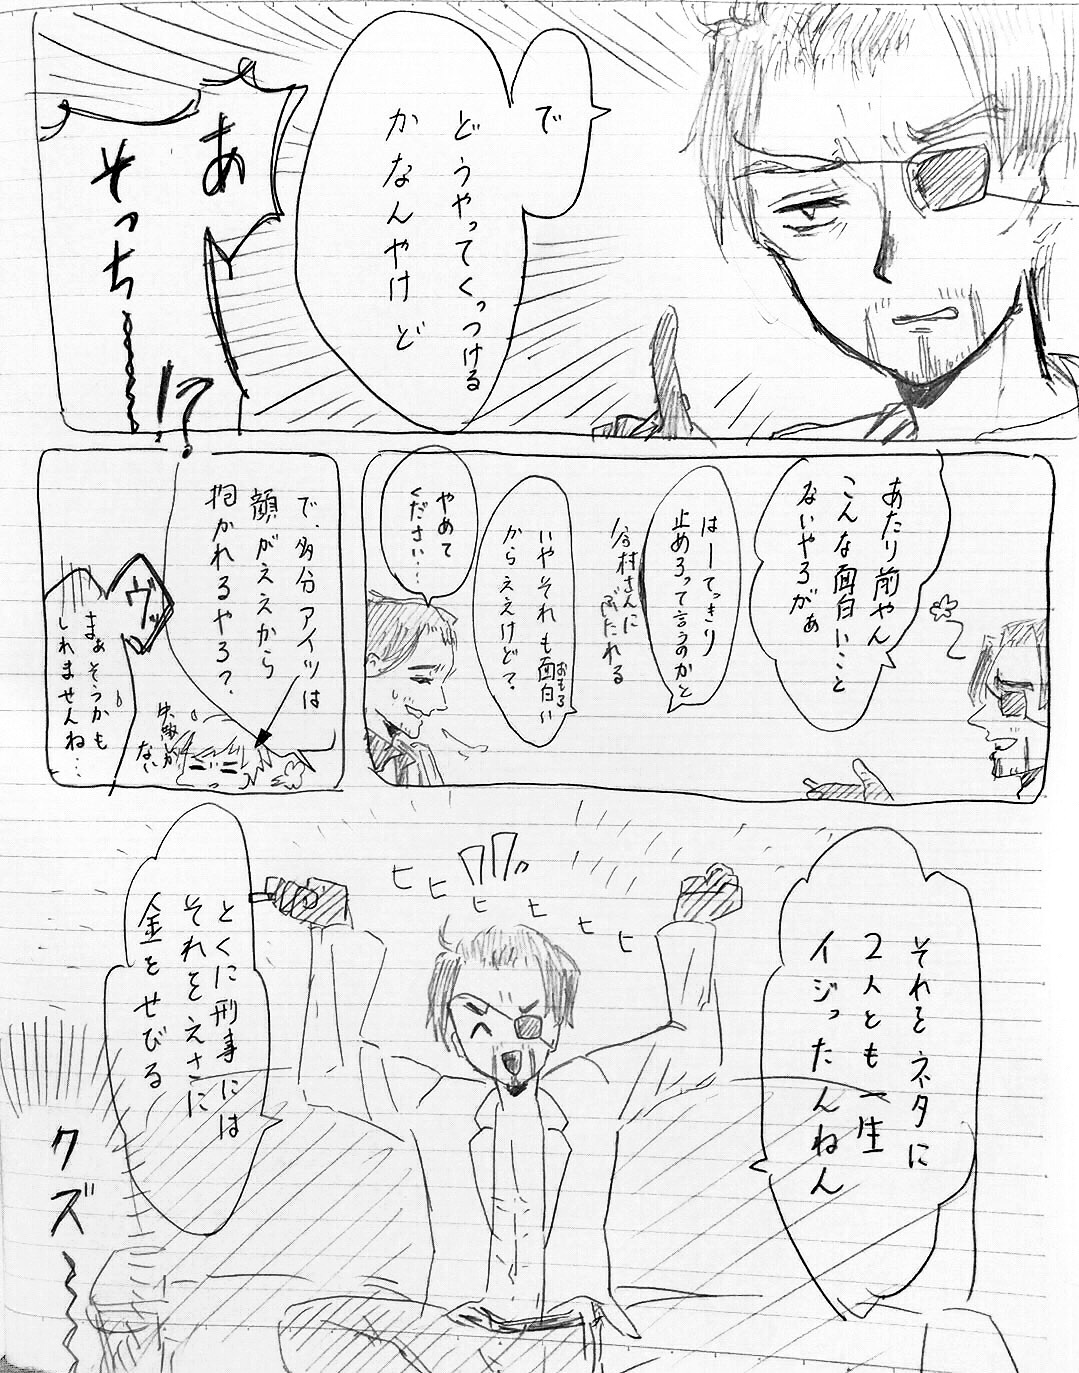 で
どうやってくっつける
かなんやけど
あ
そっち〜
!?
あたり前やん
こんな面白いこと
ないやろがぁ
はーてっきり
止めろって言うのかと
谷村さんに
いやそれも面白い
おもろ
からええけど?
やめて
ください…
で、多分アイツは
顔がええから
抱かれるやろ?
失敗が
ない
ヴッ
まぁそうかも
しれませんね…
それをネタに
2人とも一生
イジったんねん
ヒヒヒヒヒヒ
とくに刑事には
それをえさに
金をせびる
クズ〜